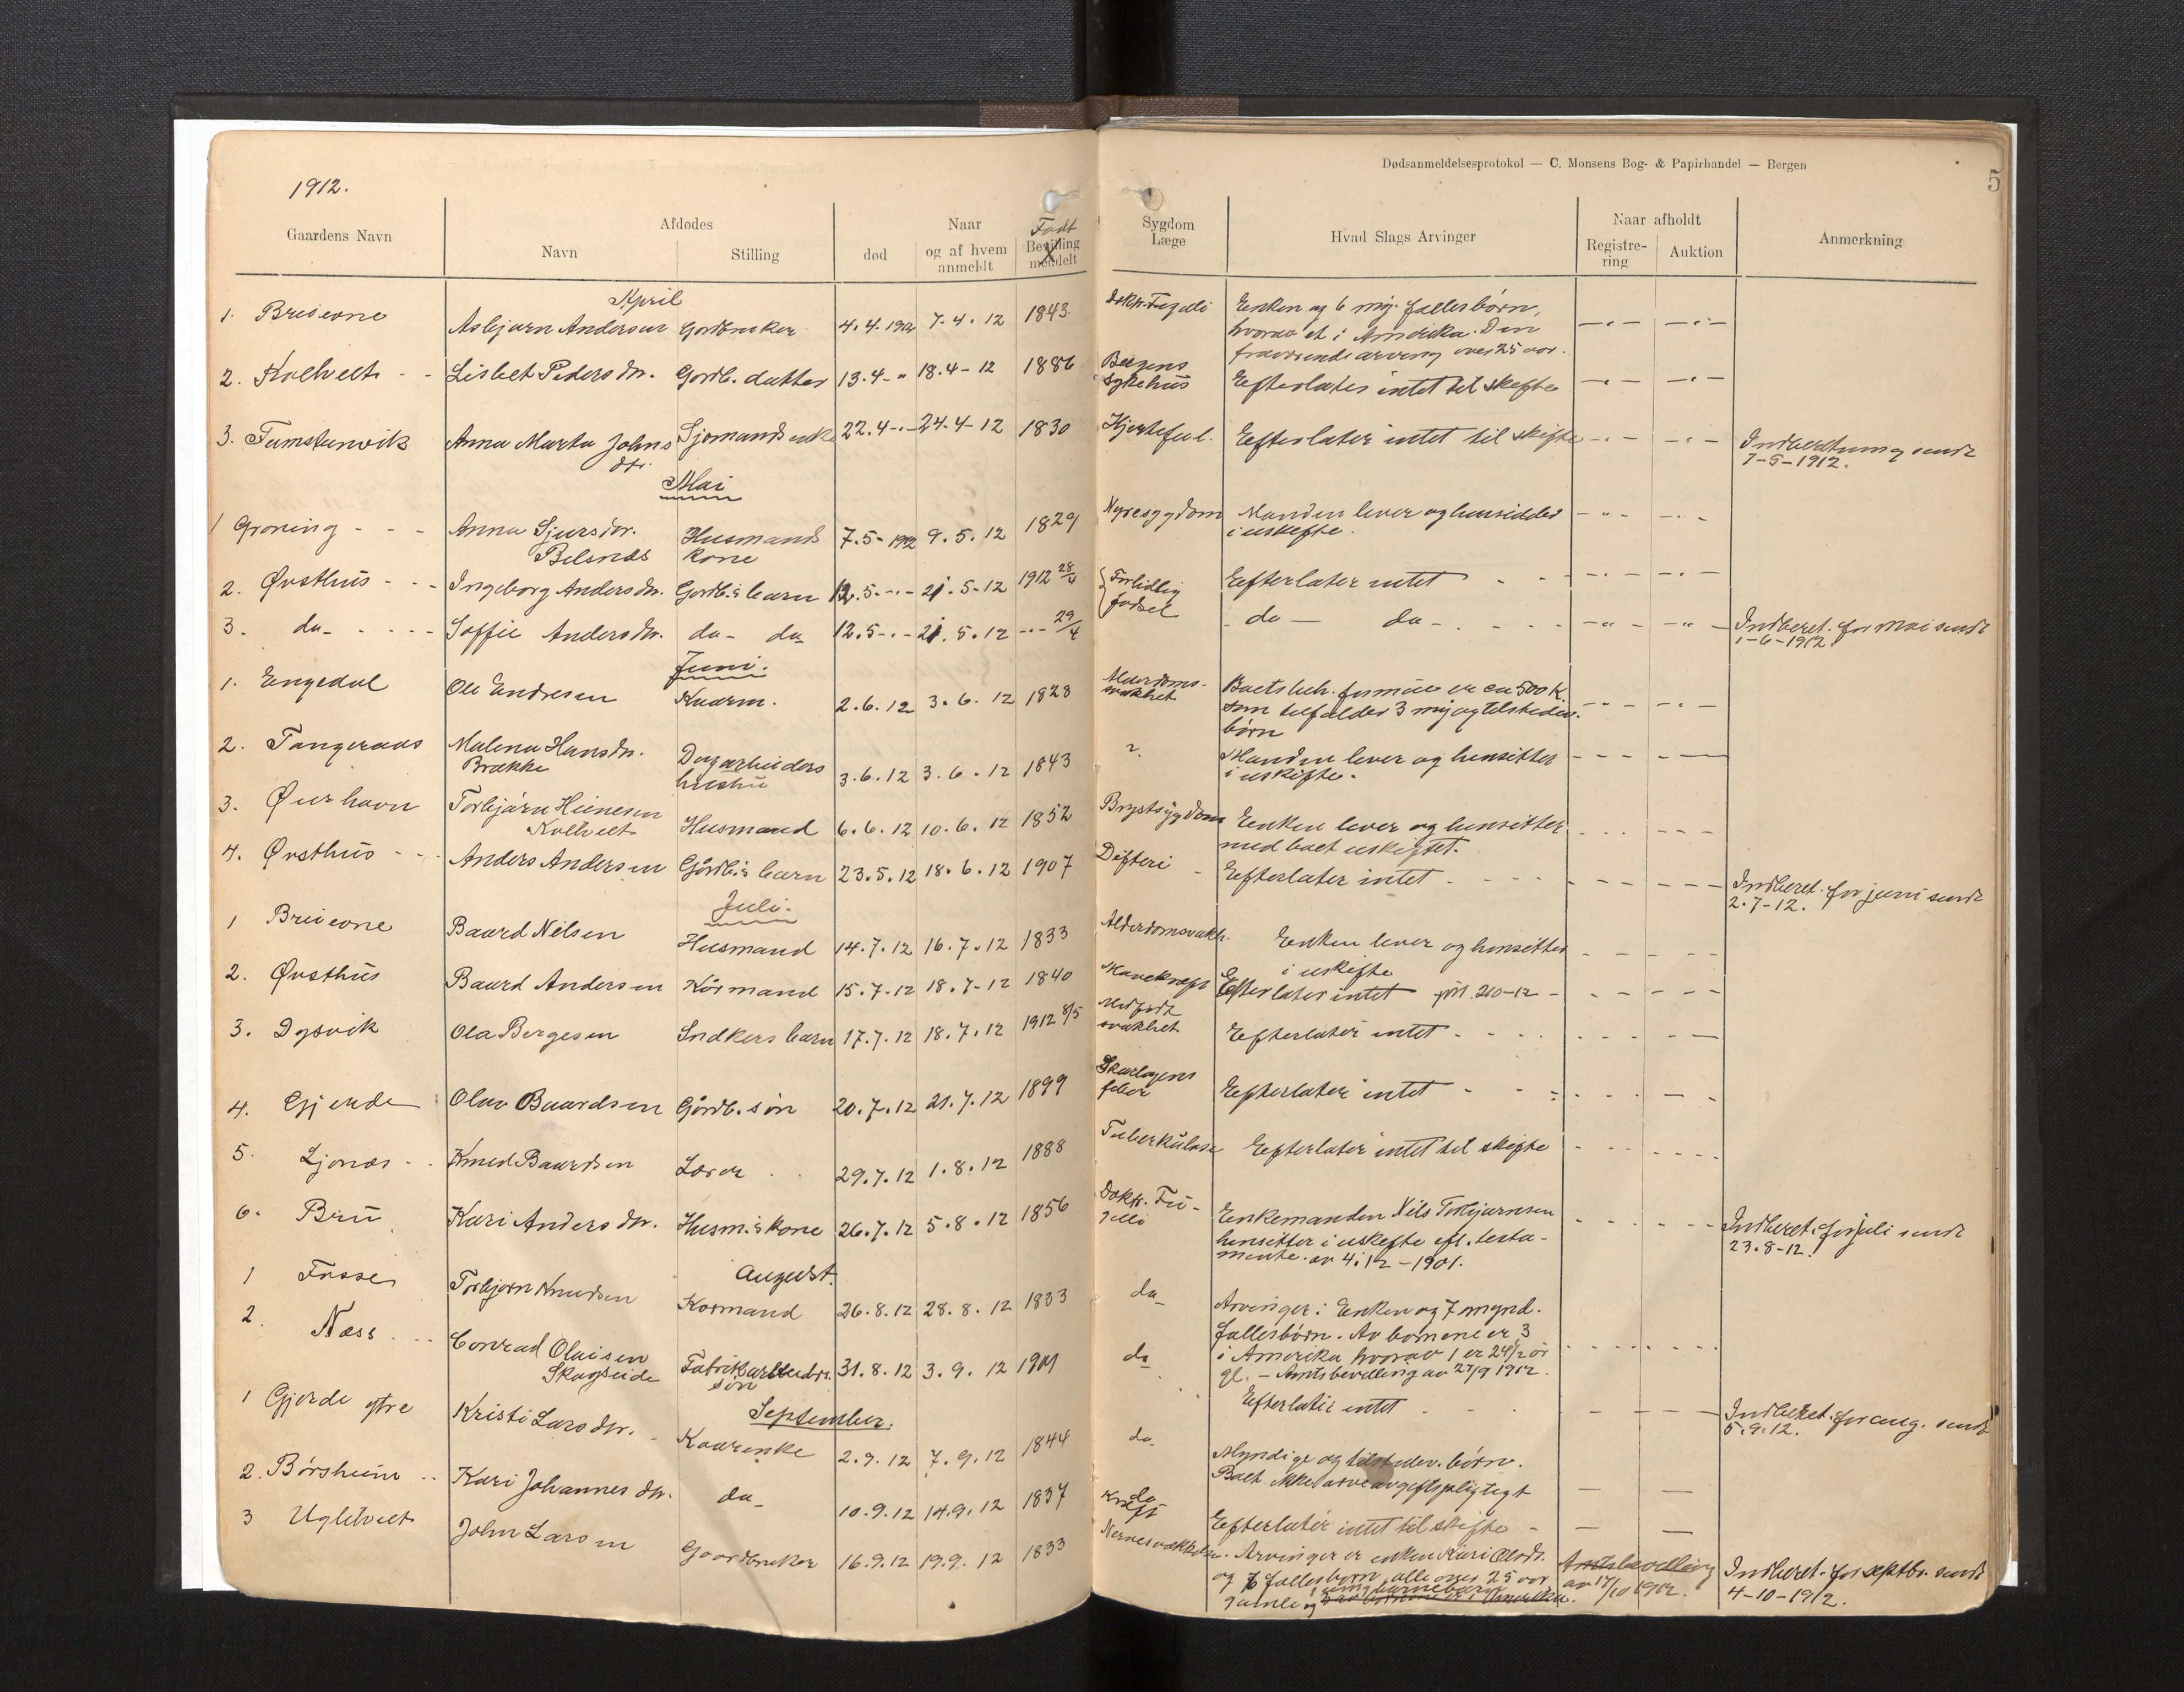 1912.
Dødsanmeldelsesprotokol — C. Monsens Bog- & Papirhandel — Bergen
5
Gaardens Navn
Afdødes
Navn
Stilling
død
Naar
og af hvem
anmeldt
Født
Bevilling
meddelt
Sygdom
Læge
Hvad Slags Arvinger
Naar afholdt
Registre-
ring
Auktion
Anmerkning
April
1. Asbjørn Andersen Gardbruker 4.4.1912 7.4.12 1843 Dokt. Fugelli Enken og 6 mig. fællesbørn,
hvorav et i Amerika. Den
fraværende arving over 25 aar.
2. Kvelvelt Lisbet Pedersdtr. Gardb. datter 13.4-" 18.4-12 1886 Bergens
sykehus Efterlater intet til skifte
3. Anna Marta Johns
dtr. Sjømandsenke 22.4-"- 24.4-12 1830 Hjertefeil. Efterlater intet til skifte Indberetning sendt
7-5-1912.
Mai
1 Groning - - - Anna Sjursdtr.
Belsnæs Husmands
kone 7.5-1912 9.5.12 1829 Nyresygdom Manden lever og hensidder
i uskifte.
2. Øvsthus - - - Ingeborg Andersdtr. Gardb.s barn 12.5.-"- 21.5-12 1912 28/4 Fortidlig
fødsel Efterlater intet
3. do- - - - - Soffie Andersdtr. do- do- 12.5-"- 21.5.12 -"- 29/4 do — do - Indberet. for mai sendt
1-6-1912
Juni.
1. Engedal Ole Endresen Kaarm. 2.6.12 3.6.12 1828 Alderdoms-
svakhet Boets beh. formue er ca 500 K.
som tilfalder 3 mig og tilstedev.
børn
2. Tangeraas Malena Hansdtr.
Brække Dagarbeiders
hustru 3.6.12 3.6.12 1843 ? Manden lever og hensitter
i uskifte.
3. Torbjørn
Kvelvelt Husmand 6.6.12 10.6.12 1852 Brystsygdom Enken lever og hensitter
med boet uskiftet.
4. Øvsthus - - Anders Andersen Gårdb.s barn 23.5.12 18.6.12 1907 Difteri Efterlater intet - - - Indberet. for juni sendt
2.7-12.
Juli.
1 Breievne Baard Nilsen Husmand 14.7.12 16.7.12 1833 Alderdomsvakh. Enken lever og hensitter
i uskifte
2. Øvsthus Baard Andersen Kårmand 15.7-12 18.7-12 1840 Mavekræft Efterlater intet
3. Dysvik Ola Børgesen barn 17.7.12 18.7.12 1912 8/5 Medfødt
svakhet Efterlater intet - - -
4. Gjerde Olav Baardsen Gårdb. søn 20.7.12 21.7.12 1899 Skarlagens
feber Efterlater intet - - -
5. Ljonæs - - Knud Baardsen Lærer 29.7.12 1.8.12 1888 Tuberkulose Efterlater intet til skifte
6. Bru Kari Andersdtr. Husm.s kone 26.7.12 5.8.12 1856 Dokt. Fu-
gelli Enkemanden Nils Torbjørnsen
hensitter i uskifte efl. testa-
mente. av 4.12-1901. Indberet. for juli sendt
23.8-12.
August.
1 Fosse Torbjørn Knudsen Kormand 26.8.12 28.8.12 1833 do- Arvinger: Enken og 7 mynd.
fællesbørn. Av børnene er 3
i Amerika hvorav 1 er 24½ år
gl. - Amtsbevilling av 27/9 1912.
2. Næss Conrad Olaisen
Skogseide Fabrikarbeiders
søn 31.8.12 3.9.12 1901 do- Efterlater intet - Indberet. for aug. sendt
5.9.12.
September.
1 Gjerde ytre Kristi Larsdtr. - Kaarenke 2.9.12 7.9.12 1844 do- Myndige og tilstedev. børn.
Boet ikke arveavgiftspligtigt
2. Børsheim - - Kari Johannesdtr. do- 10.9.12 14.9.12 1837 do-
Kræft Efterlater intet til skifte -
3 Ugletveit John Larsen Gaardbruker 16.9.12 19.9.12 1833 Arvinger er enken Kari Olsdtr.
og 7 fællesbørn, alle over 25 aar
gamle og Amerika. Amtsbevilling
av 17/10 1912. Indberet. for septbr. sendt
4-10-1912.